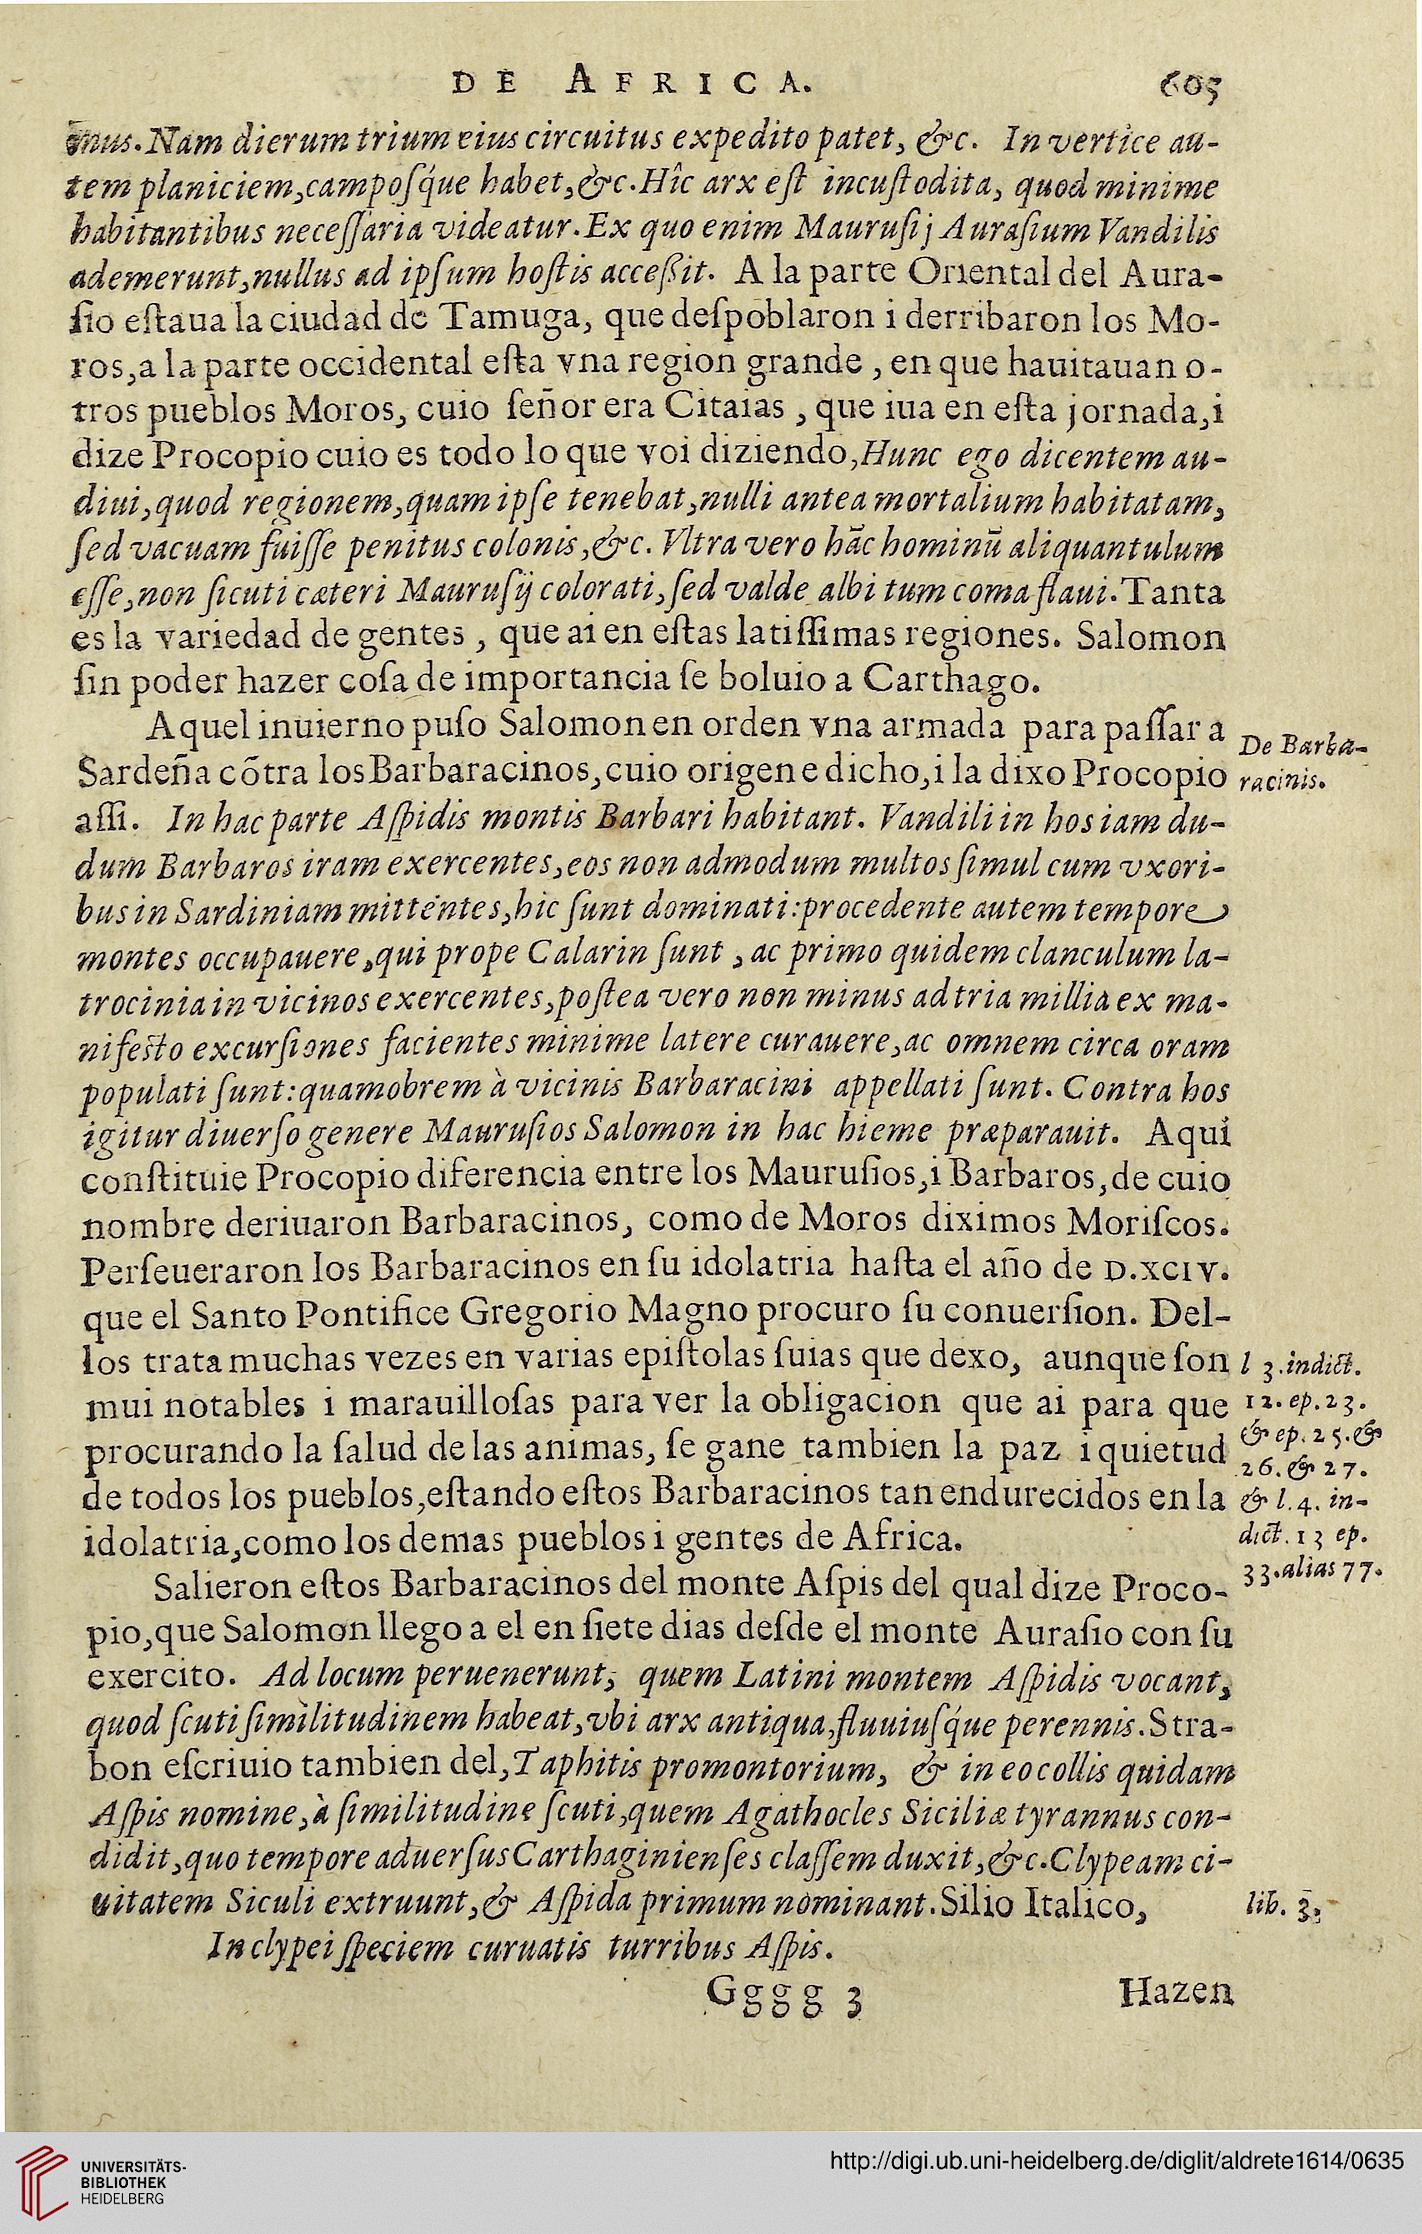 DE AFRICA. 605
mus. Nam dierum trium eius circuitus expedito patet, &c. In vertice au-
tem planiciem, camposq́ue habet, &c. Hîc arx est incustodita, quod minime
habitantibus necessaria videatur. Ex quo enim Maurusij Aurasium Vandilis
ademerunt, nullus ad ipsum hostis accessit. A la parte Oriental del Aura-
sio estaua la ciudad de Tamuga, que despoblaron i derribaron los Mo-
ros, a la parte occidental esta vna region grande, en que hauitauan o-
tros pueblos Moros, cuio señor era Citaias, que iua en esta jornada, i
dize Procopio cuio es todo lo que voi diziendo, Hunc ego dicentem au-
diui, quod regionem, quam ipse tenebat, nulli antea mortalium habitatam,
sed vacuam fuisse penitus colonis, &c. Vltra vero hāc hominū aliquantulum
esse, non sicuti cæteri Maurusij colorati, sed valde albi tum coma flaui. Tanta
es la variedad de gentes, que ai en estas latissimas regiones. Salomon
sin poder hazer cosa de importancia se boluio a Carthago.
Aquel inuierno puso Salomon en orden vna armada para passar a
Sardeña cōtra los Barbaracinos, cuio origen e dicho, i la dixo Procopio
assi. In hac parte Aspidis montis Barbari habitant. Vandili in hos iam du-
dum Barbaros iram exercentes, eos non admodum multos simul cum vxori-
bus in Sardiniam mittentes, hic sunt dominati: procedente autem tempore
montes occupauere, qui prope Calarin sunt, ac primo quidem clanculum la-
trocinia in vicinos exercentes, postea vero non minus ad tria millia ex ma-
nifesto excursiones facientes minime latere curauere, ac omnem circa oram
populati sunt: quamobrem à vicinis Barbaracini appellati sunt. Contra hos
igitur diuerso genere Maurusios Salomon in hac hieme præparauit. Aqui
constituie Procopio diferencia entre los Maurusios, i Barbaros, de cuio
nombre deriuaron Barbaracinos, como de Moros diximos Moriscos.
Perseueraron los Barbaracinos en su idolatria hasta el año de D.XCIV.
que el Santo Pontifice Gregorio Magno procuro su conuersion. Del-
los trata muchas vezes en varias epistolas suias que dexo, aunque son
mui notables i marauillosas para ver la obligacion que ai para que
procurando la salud de las animas, se gane tambien la paz i quietud
de todos los pueblos, estando estos Barbaracinos tan endurecidos en la
idolatria, como los demas pueblos i gentes de Africa.
Salieron estos Barbaracinos del monte Aspis del qual dize Proco-
pio, que Salomon llego a el en siete dias desde el monte Aurasio con su
exercito. Ad locum peruenerunt, quem Latini montem Aspidis vocant,
quod scuti similitudinem habeat, vbi arx antiqua, fluuiusq́ue perennis. Stra-
bon escriuio tambien del, Taphitis promontorium, & in eo collis quidam
Aspis nomine, à similitudine scuti, quem Agathocles Siciliæ tyrannus con-
didit, quo tempore aduersus Carthaginienses classem duxit, &c. Clypeam ci-
uitatem Siculi extruunt, & Aspida primum nominant. Silio Italico,
In clypei speciem curuatis turribus Aspis.
Gggg 3 Hazen
De Barba-
racinis.
l 3. indict.
12. ep. 23.
& ep. 25. &
26. & 27.
& l. 4. in-
dict. 13 ep.
33. alias 77.
lib. 3.
UNIVERSITÄTS-
BIBLIOTHEK
HEIDELBERG
http://digi.ub.uni-heidelberg.de/diglit/aldrete1614/0635